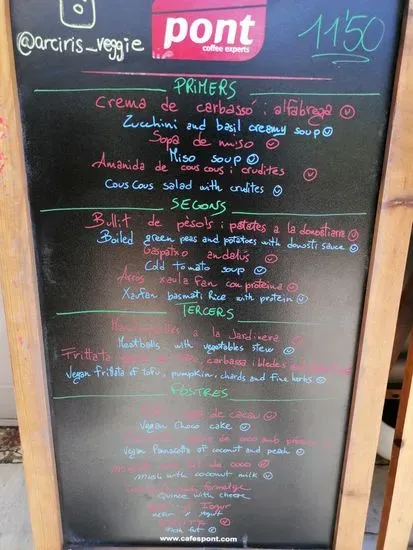 @arciris_veggie
pont
coffee experts
11'50
PRIMERS
Crema de carbassó i alfabrega
Zucchini and basil creamy soup
Sopa de miso
Miso soup
Amanida de cous cous i crudites
Cous Cous salad with crudites
SEGONS
Bullit de pèsols i patates a la donostiarra
Boiled green peas and potatoes with donosti sauce
Gaspatxo andalús
Cold tomato soup
Arròs xaufan con proteina
Xaufan basmati Rice with protein
TERCERS
a la Jardinera
Meatballs with vegetables stew
Frittata carbassa i bledes
Vegan frittata of tofu, pumpkin, chards and fine herbs
POSTRES
de cacau
Vegan Choco cake
de coco amb
Vegan Pannacotta of coconut and peach
coco
with coconut milk
formatge
Quince with cheese
iogur
yogurt
www.cafespont.com